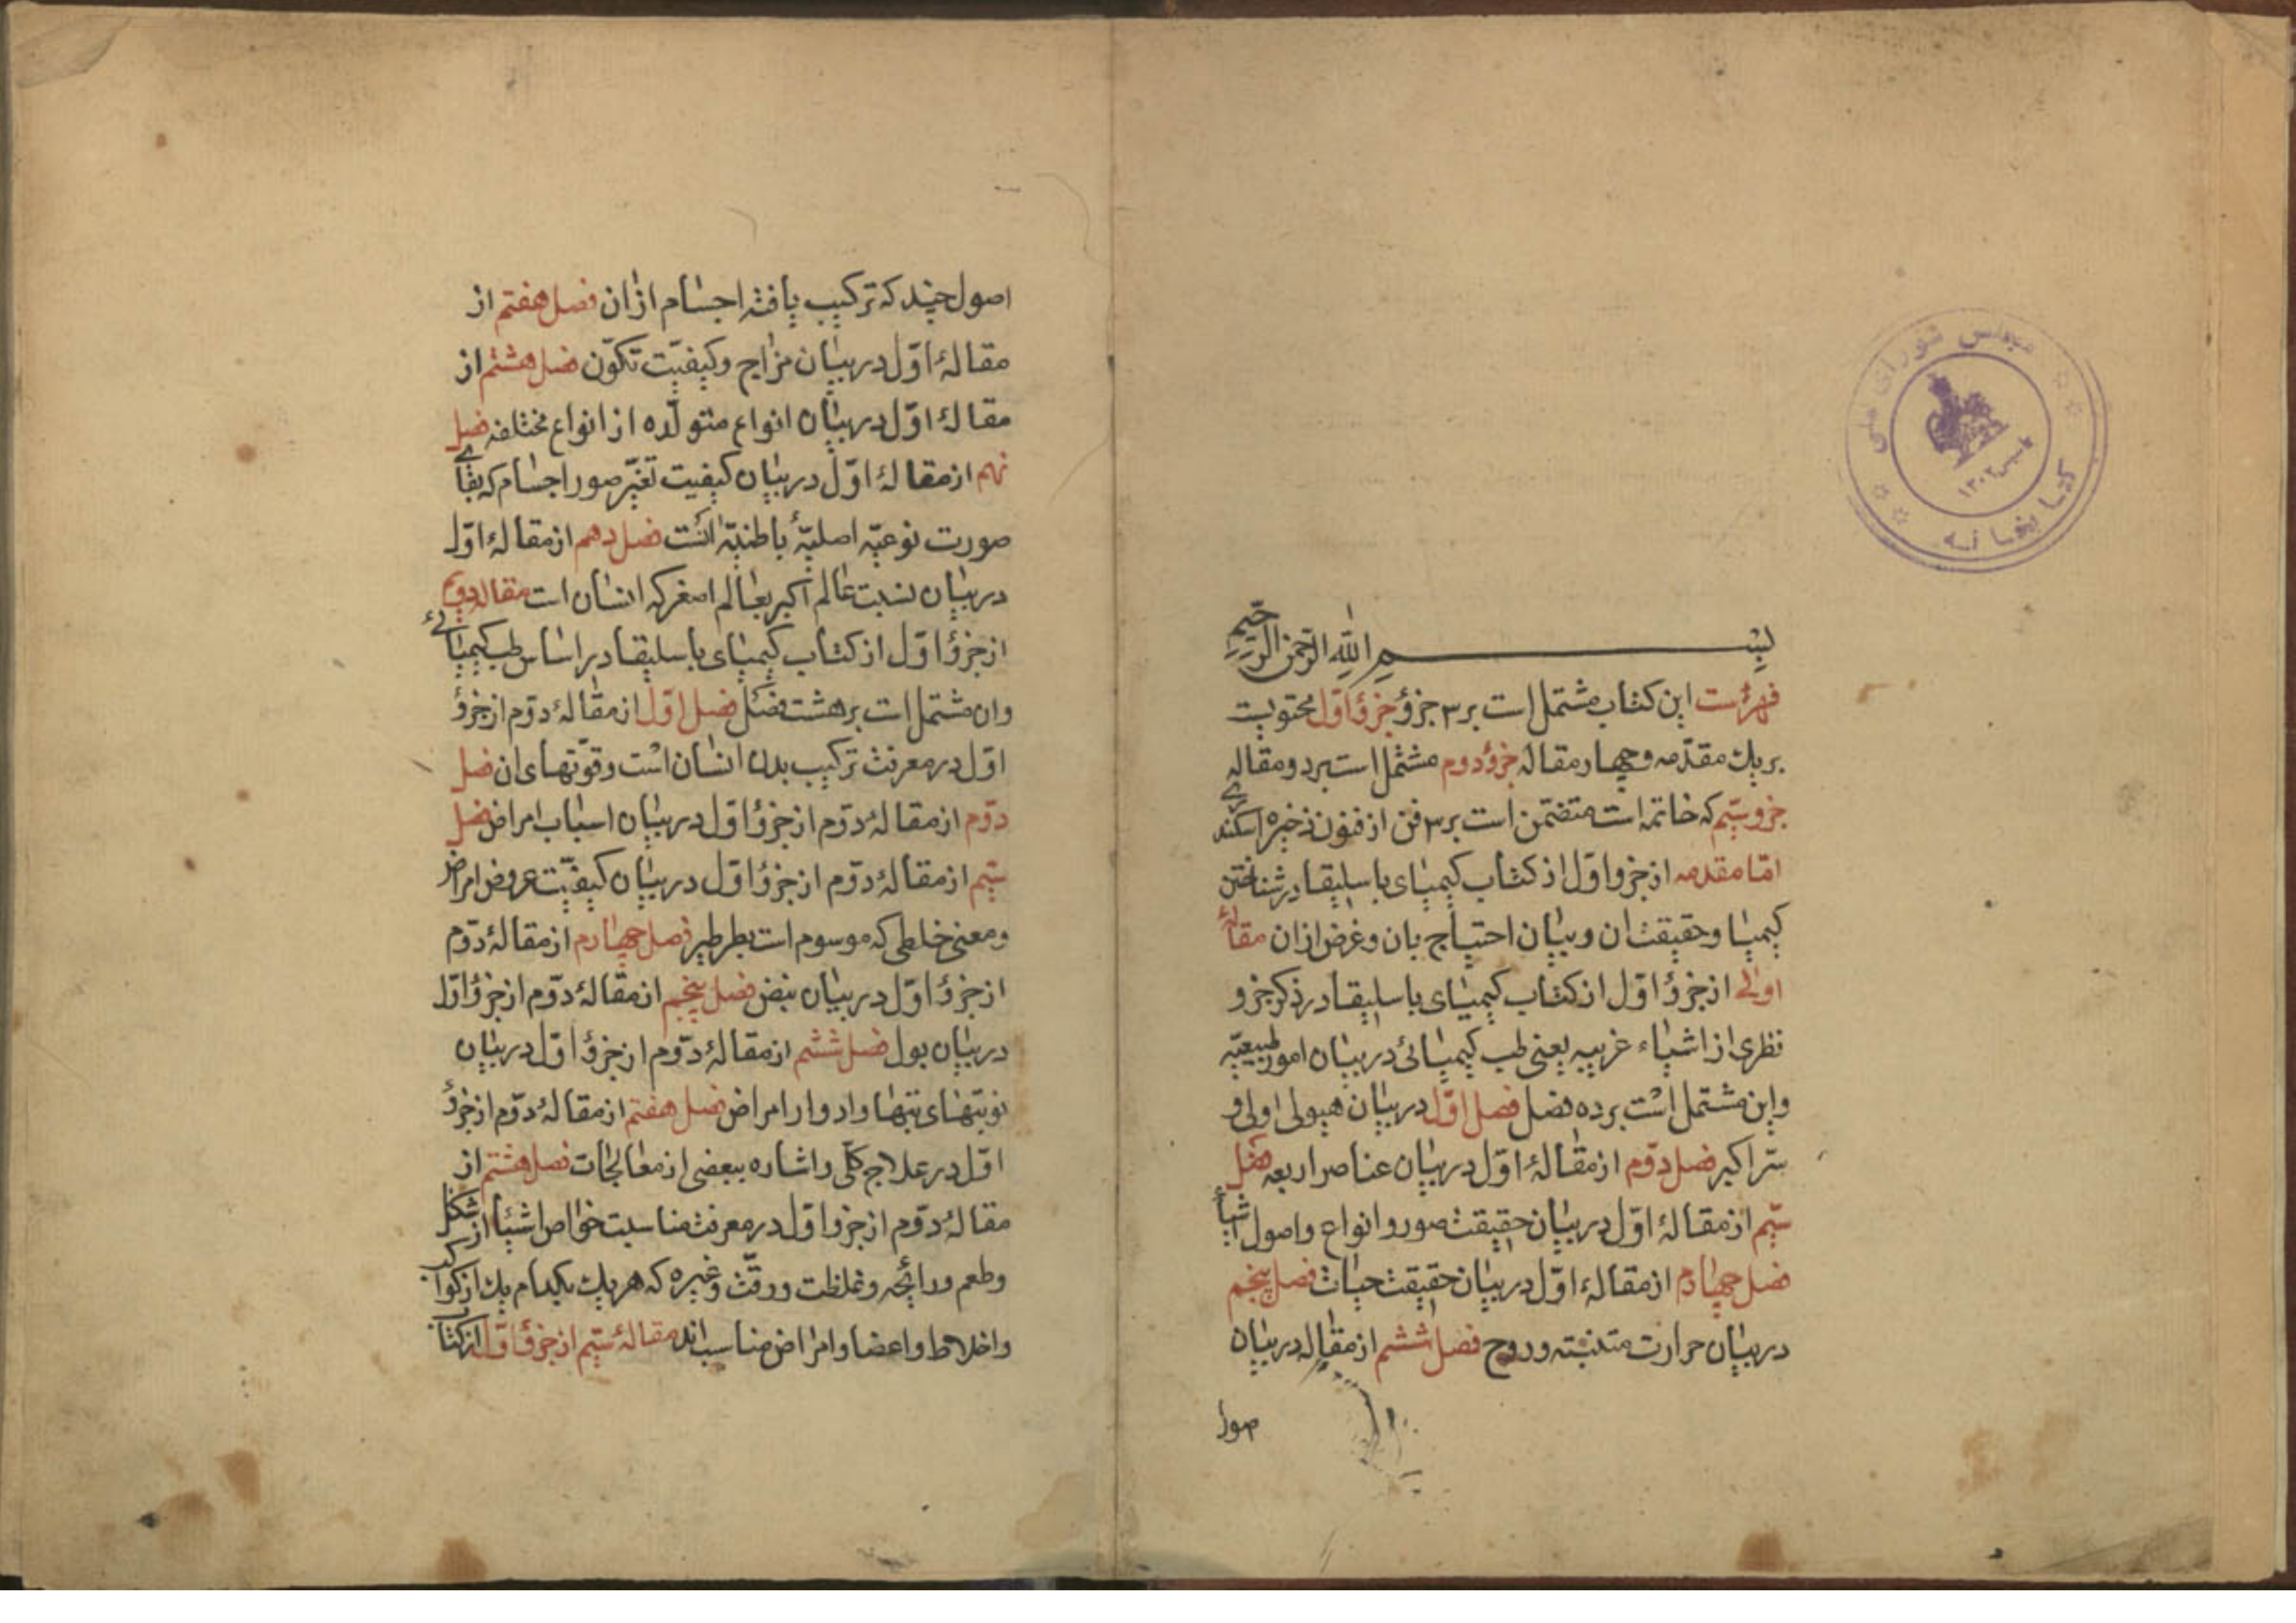 بسم الله الرحمن الرحیم
فهرست این کتاب مشتمل است بر ۳ جزؤ جزؤ اوّل محتویست
بریك مقدّمه وچهار مقاله جزؤ دوم مشتمل است بر دو مقاله
جزو سیّم که خاتمه است متضمّن است بر ۳ فن از فنون ذخیره اسکندری
امّا مقدمه از جزو اوّل از کتاب کیمیای باسلیقا در شناختن
کیمیا وحقیقت ان وبیان احتیاج بان وغرض ازان مقالهٔ
اولی از جزؤ اوّل از کتاب کیمیای باسلیقا در ذکر جزو
نظری از اشیاء غریبه یعنی طب کیمیائی در بیان امور طبیعیّه
واین مشتمل است بر ده فصل فصل اوّل در بیان هیولی اولی و
سرّ اکبر فصل دوّم از مقالهٔ اوّل در بیان عناصر اربعه فصل
سیّم از مقالهٔ اوّل در بیان حقیقت صور وانواع واصول اشیأ
فصل چهارم از مقالهٔ اوّل در بیان حقیقت حیات فصل پنجم
در بیان حرارت وروح فصل ششم از مقاله در بیان
اصول چند که ترکیب یافته اجسام ازان فصل هفتم از
مقالهٔ اوّل در بیان مزاج وکیفیّت تکوّن فصل هشتم از
مقالهٔ اوّل در بیان انواع متولّده از انواع مختلفه فصل
نهم از مقالهٔ اوّل در بیان کیفیت تغیّر صور اجسام که بقای
صورت نوعیّه اصلیّهٔ باطنیّه است فصل دهم از مقالهٔ اوّل
در بیان نسبت عالم اکبر بعالم اصغر که انسان است مقاله دوم
از جزؤ اوّل از کتاب کیمیای باسلیقا در اساس طب کیمیائی
وان مشتمل است بر هشت فصل فصل اوّل از مقالهٔ دوّم از جزؤ
اوّل در معرفت ترکیب بدن انسان است وقوّتهای ان فصل
دوّم از مقالهٔ دوّم از جزؤ اوّل در بیان اسباب امراض فصل
سیّم از مقالهٔ دوّم از جزؤ اوّل در بیان کیفیّت عروض امراض
ومعنی خلطی که موسوم است بطرطیر فصل چهارم از مقالهٔ دوّم
از جزؤ اوّل در بیان نبض فصل پنجم از مقالهٔ دوّم از جزؤ اوّل
در بیان بول فصل ششم از مقالهٔ دوّم از جزؤ اوّل در بیان
نوبتهای تبها وادوار امراض فصل هفتم از مقالهٔ دوّم از جزؤ
اوّل در علاج کلّی واشاره ببعضی از معالجات فصل هشتم از
مقالهٔ دوّم از جزو اوّل در معرفت مناسبت خواص اشیأ از شکل
وطعم ورائحه وغلظت ورقّت وغیره که هریك بکدام یك از کواکب
واخلاط واعضا وامراض مناسب اند مقالهٔ سیّم از جزؤ اوّل از کتاب
مجلس شورای ملی
کتابخانه
۱۳۰۲